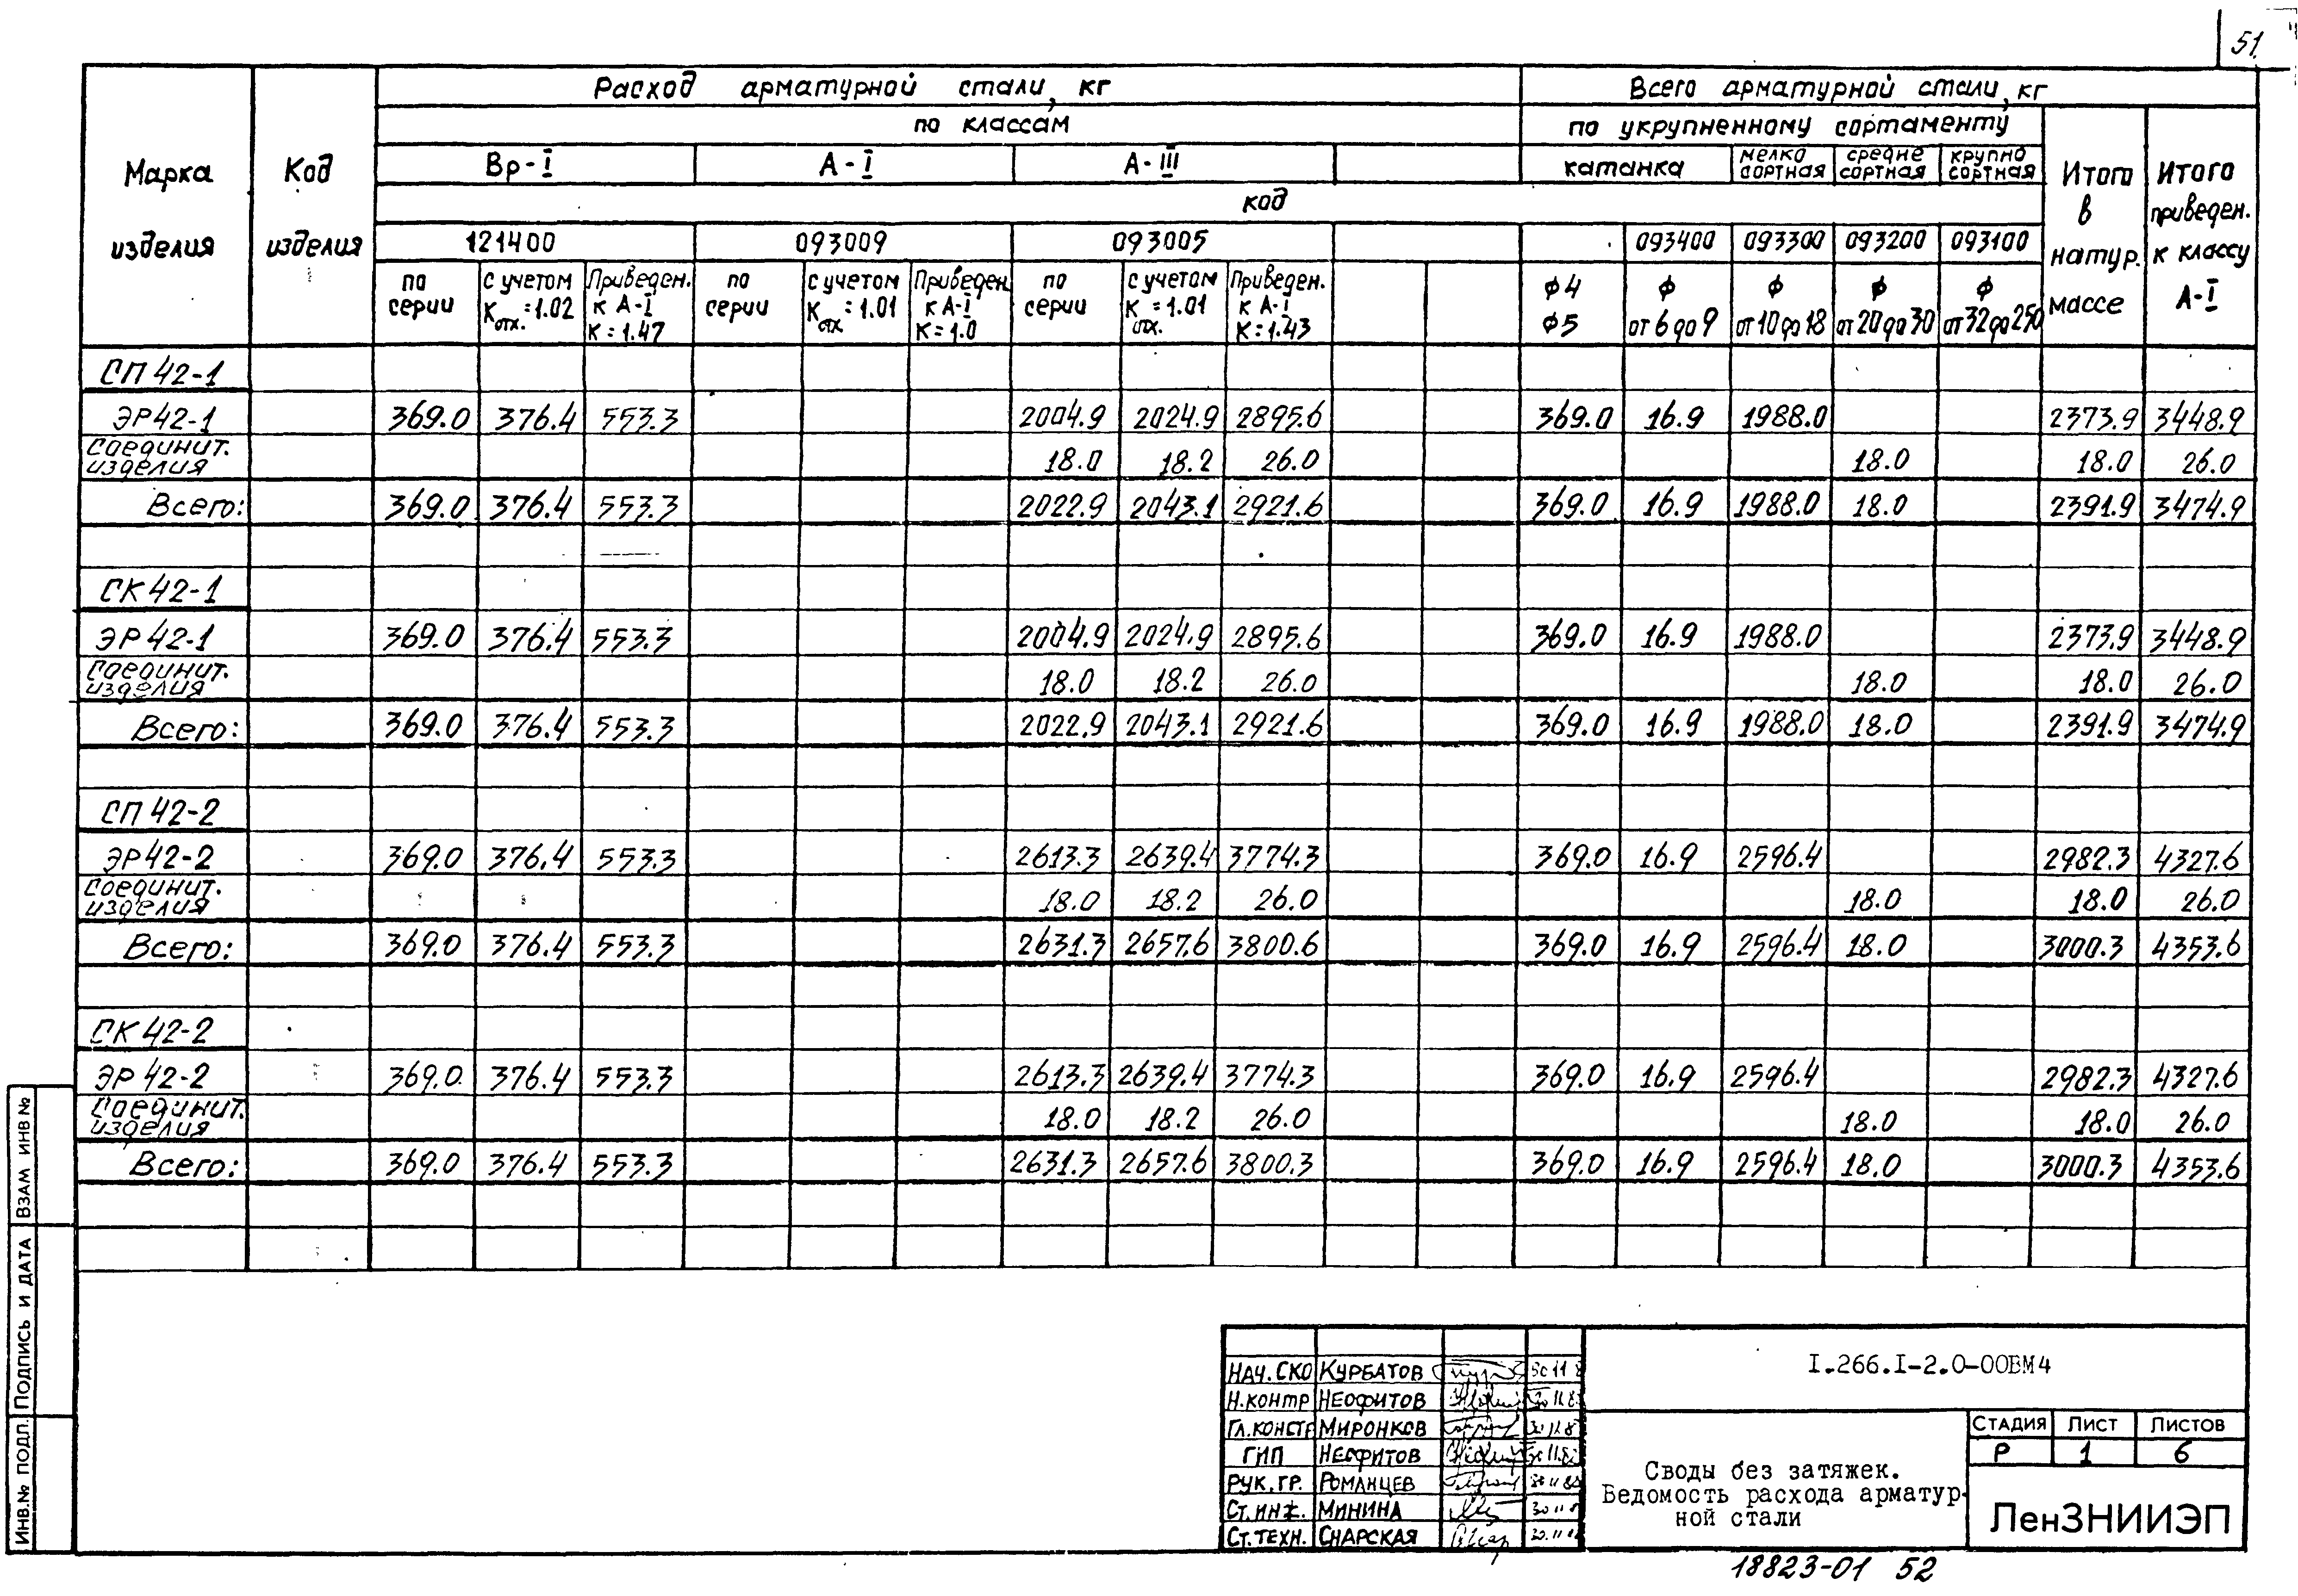 51
Расход арматурной стали, кг
Всего арматурной стали, кг
по классам
по укрупненному сортаменту
Марка изделия
Код изделия
Вр-I
А-I
А-III
катанка
мелко сортная
средне сортная
крупно сортная
Итого в натур. массе
Итого приведен. к классу А-I
код
121400
093009
093005
093400
093300
093200
093100
по серии
с учетом Котх.=1.02
Приведен. к А-I К=1.47
по серии
с учетом Котх=1.01
Приведен. к А-I К=1.0
по серии
с учетом К=1.01 отх.
Приведен. к А-I К=1.43
ф4 ф5
ф от 6 до 9
ф от 10 до 18
ф от 20 до 30
ф от 32 до 250
СП 42-1
ЭР 42-1 369.0 376.4 553.3 2004.9 2024.9 2895.6 369.0 16.9 1988.0 2373.9 3448.9
Соединит. изделия 18.0 18.2 26.0 18.0 18.0 26.0
Всего: 369.0 376.4 553.3 2022.9 2043.1 2921.6 369.0 16.9 1988.0 18.0 2391.9 3474.9
СК 42-1
ЭР 42-1 369.0 376.4 553.3 2004.9 2024.9 2895.6 369.0 16.9 1988.0 2373.9 3448.9
Соединит. изделия 18.0 18.2 26.0 18.0 18.0 26.0
Всего: 369.0 376.4 553.3 2022.9 2043.1 2921.6 369.0 16.9 1988.0 18.0 2391.9 3474.9
СП 42-2
ЭР 42-2 369.0 376.4 553.3 2613.3 2639.4 3774.3 369.0 16.9 2596.4 2982.3 4327.6
Соединит. изделия 18.0 18.2 26.0 18.0 18.0 26.0
Всего: 369.0 376.4 553.3 2631.3 2657.6 3800.6 369.0 16.9 2596.4 18.0 3000.3 4353.6
СК 42-2
ЭР 42-2 369.0 376.4 553.3 2613.3 2639.4 3774.3 369.0 16.9 2596.4 2982.3 4327.6
Соединит. изделия 18.0 18.2 26.0 18.0 18.0 26.0
Всего: 369.0 376.4 553.3 2631.3 2657.6 3800.3 369.0 16.9 2596.4 18.0 3000.3 4353.6
ИНВ.№ ПОДЛ. ПОДПИСЬ И ДАТА ВЗАМ ИНВ №
НАЧ. СКО КУРБАТОВ
Н.КОНТР НЕОФИТОВ
ГЛ.КОНСТР МИРОНКОВ
ГИП НЕОФИТОВ
РУК. ГР. РОМАНЦЕВ
СТ. ИНЖ. МИНИНА
СТ. ТЕХН. СНАРСКАЯ
I.266.I-2.0-00ВМ4
Своды без затяжек.
Ведомость расхода арматур-
ной стали
СТАДИЯ ЛИСТ ЛИСТОВ
Р 1 6
ЛенЗНИИЭП
18823-01 52